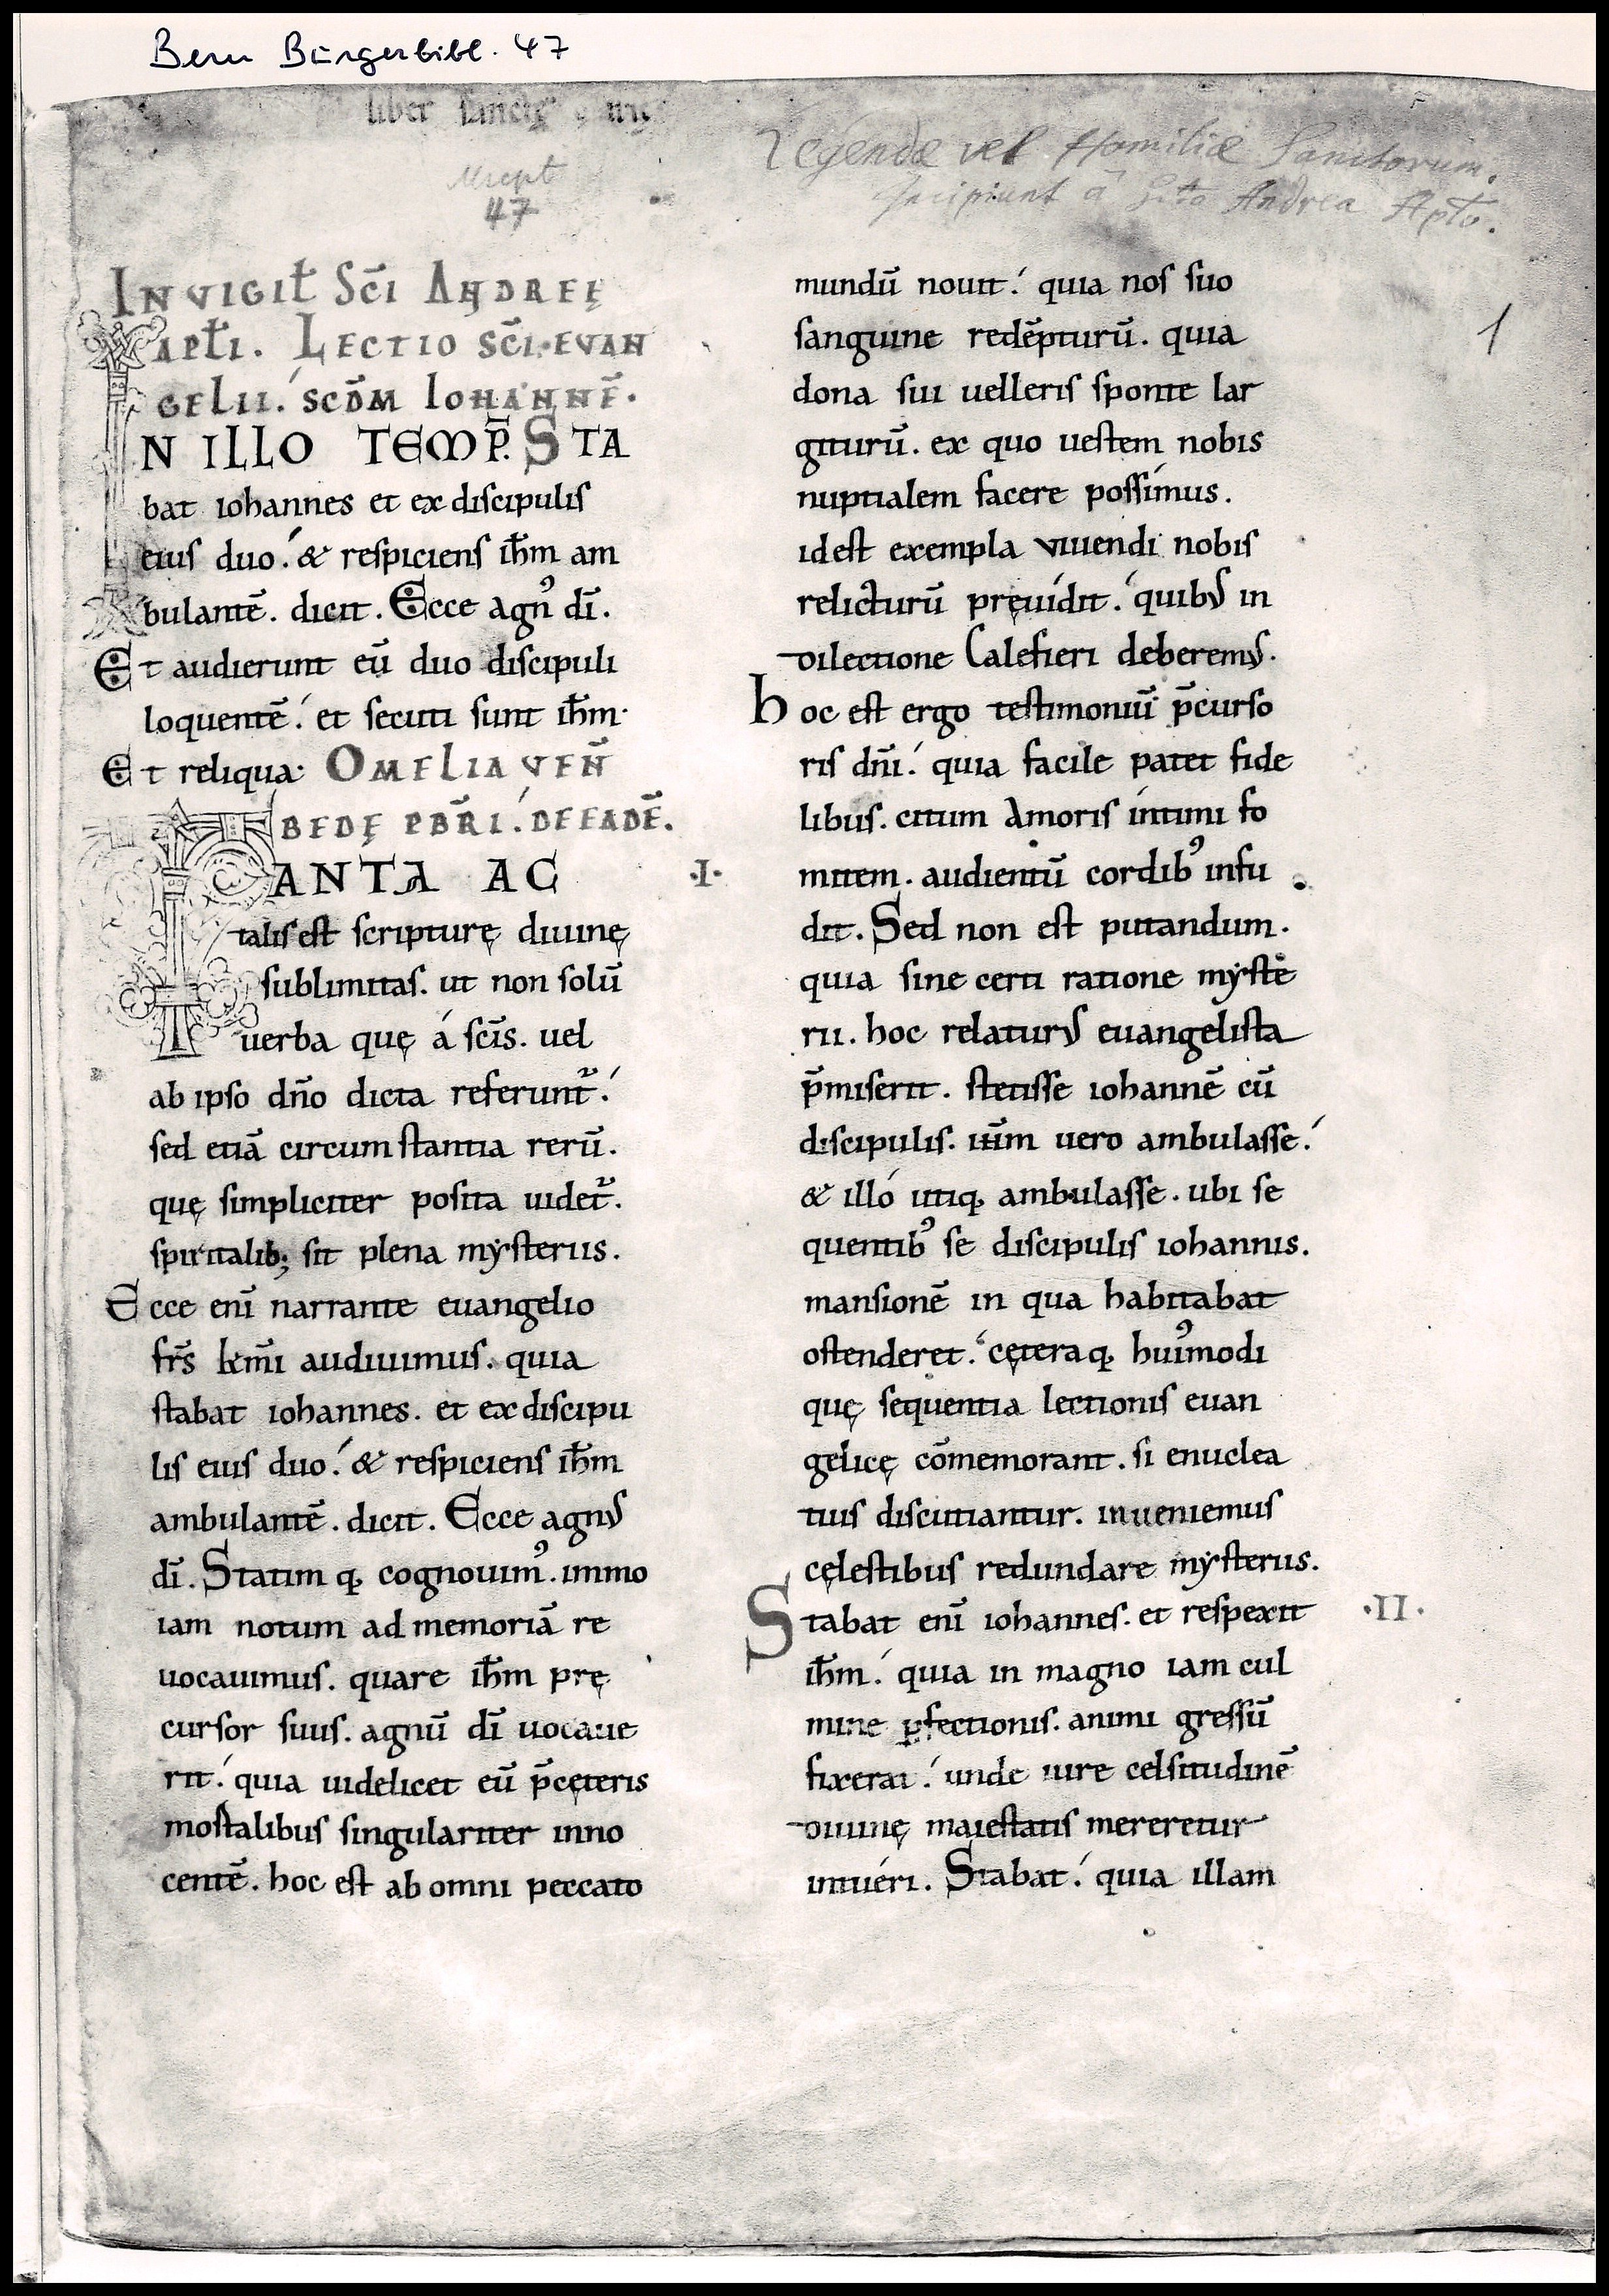 Bern Bürgerbibl. 47
liber sancte
Mscpt
47
Legendæ vel Homiliæ Sanctorum.
Incipiunt â Sc̃to Andrea Apto.
1
IN VIGIL̃ SC̃I ANDREĘ
APL̃I. LECTIO SC̃I EVAN
GELII. SCD̃M IOHANNĒ.
IN ILLO TEMP̃. STA
bat iohannes et ex discipulis
eius duo. & respiciens ih̃m am
bulantē. dicit. Ecce agn᾽ dī.
Et audierunt eū duo discipuli
loquentē. et secuti sunt ih̃m.
Et reliqua. OMELIA VEÑ
BEDĘ PB̃RI. DE EADĒ.
TANTA AC ·I·
talis est scripturę diuinę
sublimitas. ut non solū
uerba quę á sc̃is. uel
ab ipso dño dicta referunt᷑.
sed etiā circumstantia rerū.
quę simpliciter posita uidet᷑.
spiritalib; sit plena mysteriis.
Ecce enī narrante euangelio
fr̃s km̃i audiuimus. quia
stabat iohannes. et ex discipu
lis eius duo. & respiciens ih̃m
ambulantē. dicit. Ecce agnus
dī. Statimq; cognouim᾽. immo
iam notum ad memoriā re
uocauimus. quare ih̃m prę
cursor suus. agnū dī uocaue
rit. quia uidelicet eū p̃cęteris
mortalibus singulariter inno
centē. hoc est ab omni peccato
mundū nouit. quia nos suo
sanguine redēpturū. quia
dona sui uelleris sponte lar
giturū. ex quo uestem nobis
nuptialem facere possimus.
id est exempla viuendi nobis
relicturū pręuidit. quibus in
dilectione Calefieri deberemus.
hoc est ergo testimoniū p̃curso
ris dñi. quia facile patet fide
libus. citum Amoris intimi fo
mitem. audientū cordib᾽ infu
dit. Sed non est putandum.
quia sine certi ratione myste
rii. hoc relaturus euangelista
p̃miserit. stetisse iohannē cū
discipulis. ih̃m uero ambulasse.
& illó utiq; ambulasse. ubi se
quentib᾽ se discipulis iohannis.
mansionē in qua habitabat
ostenderet. cęteraq; hui᾽modi
quę sequentia lectionis euan
gelicę cōmemorant. si enuclea
tius discutiantur. inueniemus
cęlestibus redundare mysteriis.
Stabat enī iohannes. et respexit ·II·
ih̃m. quia in magno iam cul
mine ꝑfectionis. animi gressū
fixerat. unde iure celsitudinē
diuinę maiestatis mereretur
intuéri. Stabat. quia illam